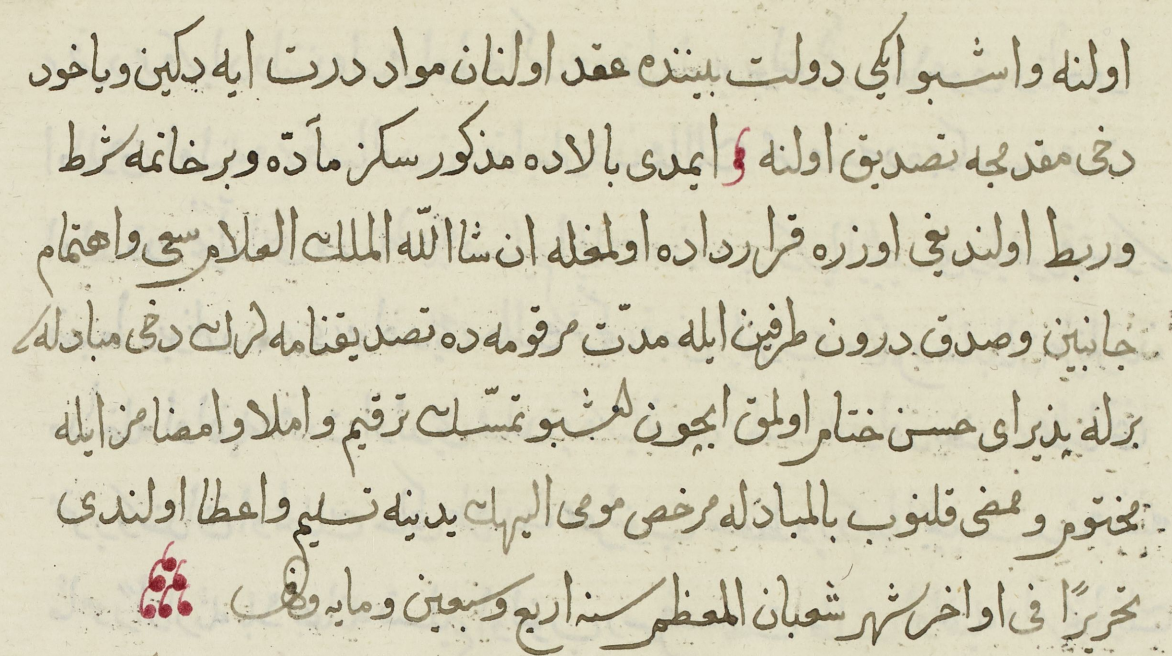 اولنه و اشبو ایکی دولت بیننده عقد اولنان مواد درت ایه دکین و یاخود
دخی مقدمجه تصدیق اولنه ایمدی بالاده مذکور سکز مآدّه و بر خاتمه شرط
و ربط اولندیغی اوزره قرارداده اولمغله ان شاالله الملك العلام سعی و اهتمام
جانبین و صدق درون طرفین ایله مدّت مرقومه ده تصدیقنامه لرك دخی مبادله
برله پذیرای حسن ختام اولمق ایچون اشبو تمسّك ترقیم و املا و امضامز ایله
مختوم و ممضی قلنوب بالمبادله مرخص مومی الیهك یدینه تسلیم و اعطا اولندی
تحریرًا فی اواخر شهر شعبان المعظم سنه اربع و سبعین و مایه والف